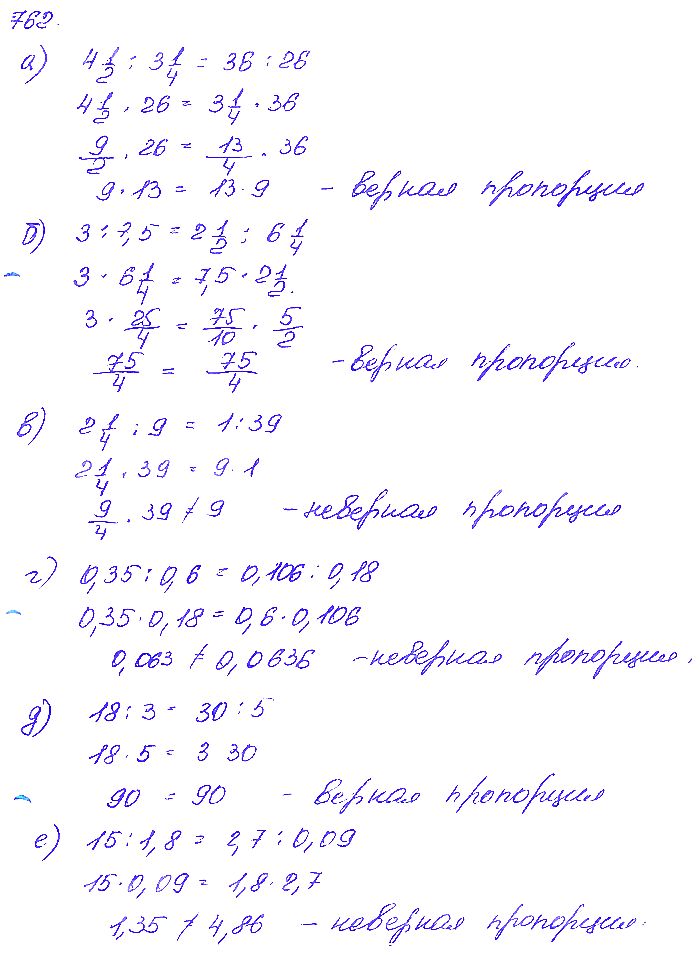 762.
а) 4 1/2 : 3 1/4 = 36 : 26
4 1/2 · 26 = 3 1/4 · 36
9/2 · 26 = 13/4 · 36
9 · 13 = 13 · 9 - верная пропорция
б) 3 : 7,5 = 2 1/2 : 6 1/4
3 · 6 1/4 = 7,5 · 2 1/2.
3 · 25/4 = 75/10 · 5/2
75/4 = 75/4 - верная пропорция.
в) 2 1/4 : 9 = 1 : 39
2 1/4 · 39 = 9 · 1
9/4 · 39 ≠ 9 - неверная пропорция
г) 0,35 : 0,6 = 0,106 : 0,18
0,35 · 0,18 = 0,6 · 0,106
0,063 ≠ 0,0636 - неверная пропорция.
д) 18 : 3 = 30 : 5
18 · 5 = 3 30
90 = 90 - верная пропорция
е) 15 : 1,8 = 2,7 : 0,09
15 · 0,09 = 1,8 · 2,7
1,35 ≠ 4,86 - неверная пропорция.